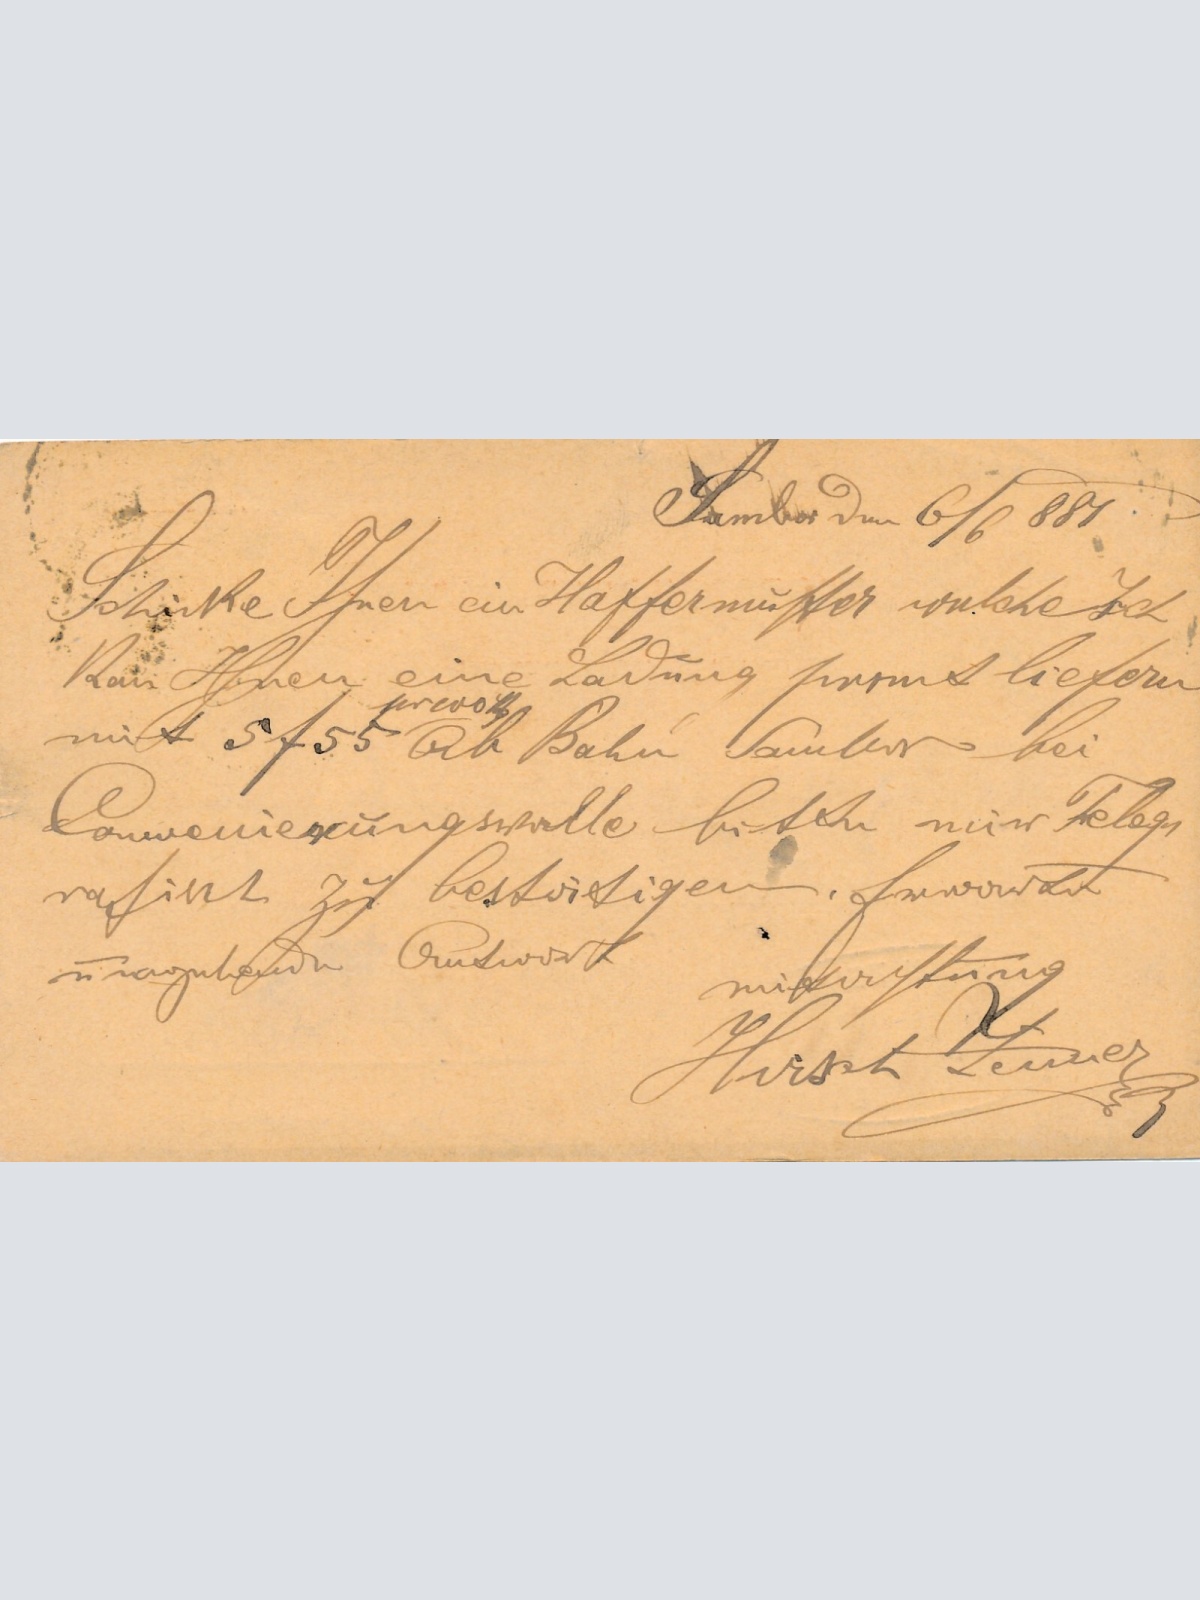 Sambor den 6/6 881
Schicke Ihnen ein Haffermuster welche Ich
Kan Ihnen eine Ladung promt liefern
mit 5 f 55 pr 100 K Ab Bahn Sambor bei
Convenierungsfalle bitte mir Teleg
rafisch zu bestätigen. Erwarte
umgehende Antwort
mit Achtung
Hirsch